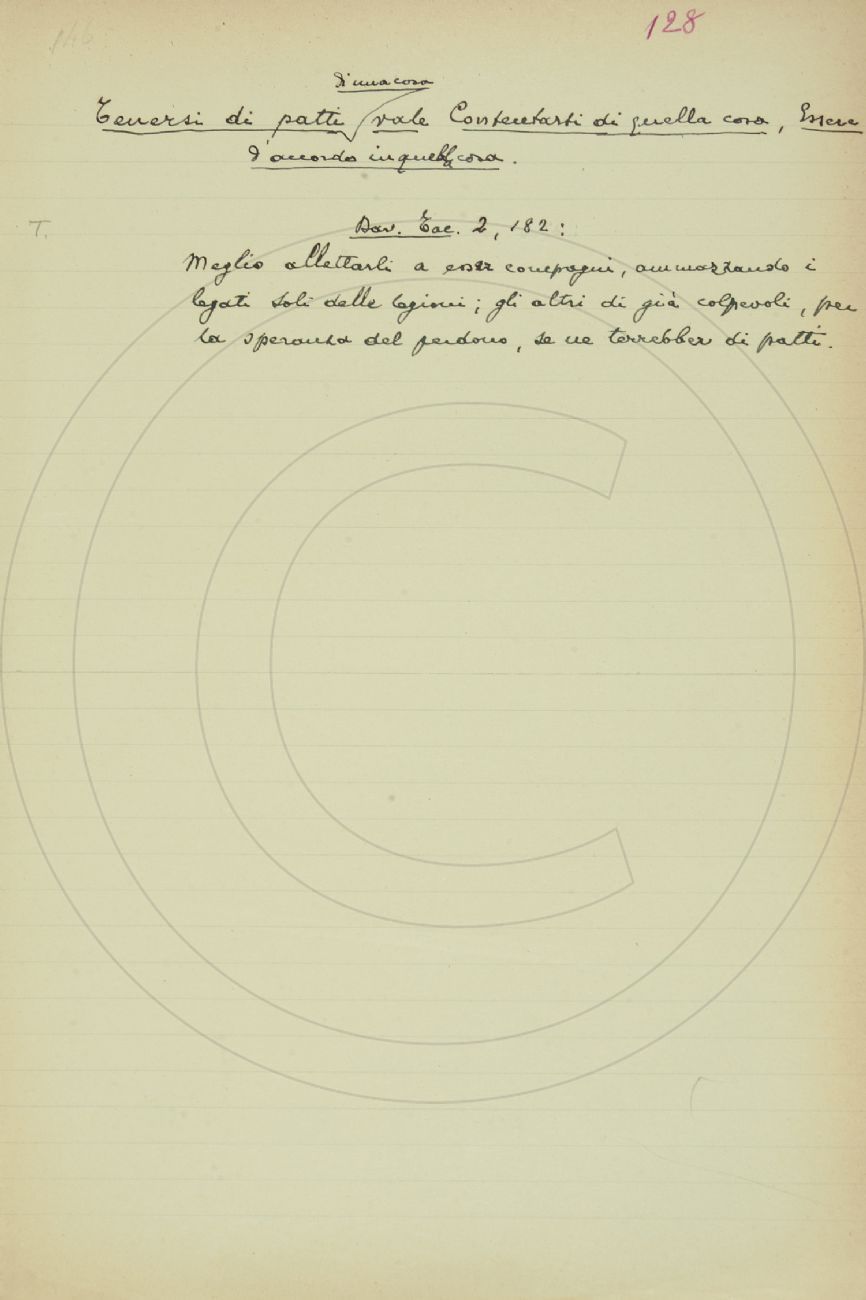 146
128
di una cosa
Tenersi di patti vale Contentarsi di quella cosa, Essere
d'accordo in quella cosa.
T.
Dav. Tac. 2, 182:
Meglio allettarli a esser compagni, ammazzando i
legati soli delle legioni; gli altri di già colpevoli, per
la speranza del perdono, se ne terrebber di patti.